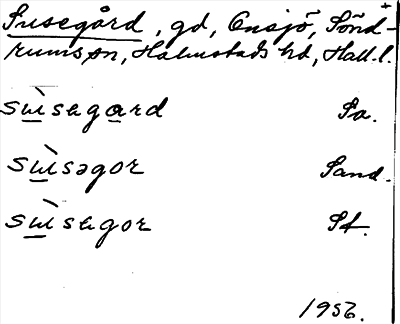 Susegård, gd, Ensjö, Sönd-
rums sn, Halmstads hd, Hall. l.
sùsegard Sa.
sùsəgor Sand.
sùsegor St.
1956.